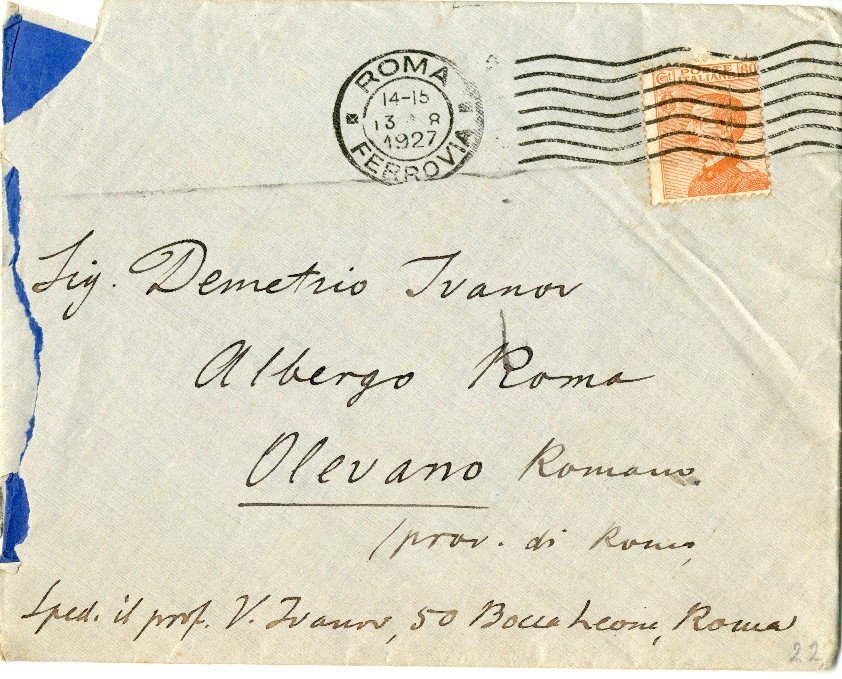 ROMA
14-15
13 8
1927
FERROVIA
Cent POSTE 60
ITALIANE
Sig. Demetrio Ivanov
Albergo Roma
Olevano Romano
(prov. di Roma)
Sped. il prof. V. Ivanov, 50 Bocca Leone, Roma
22